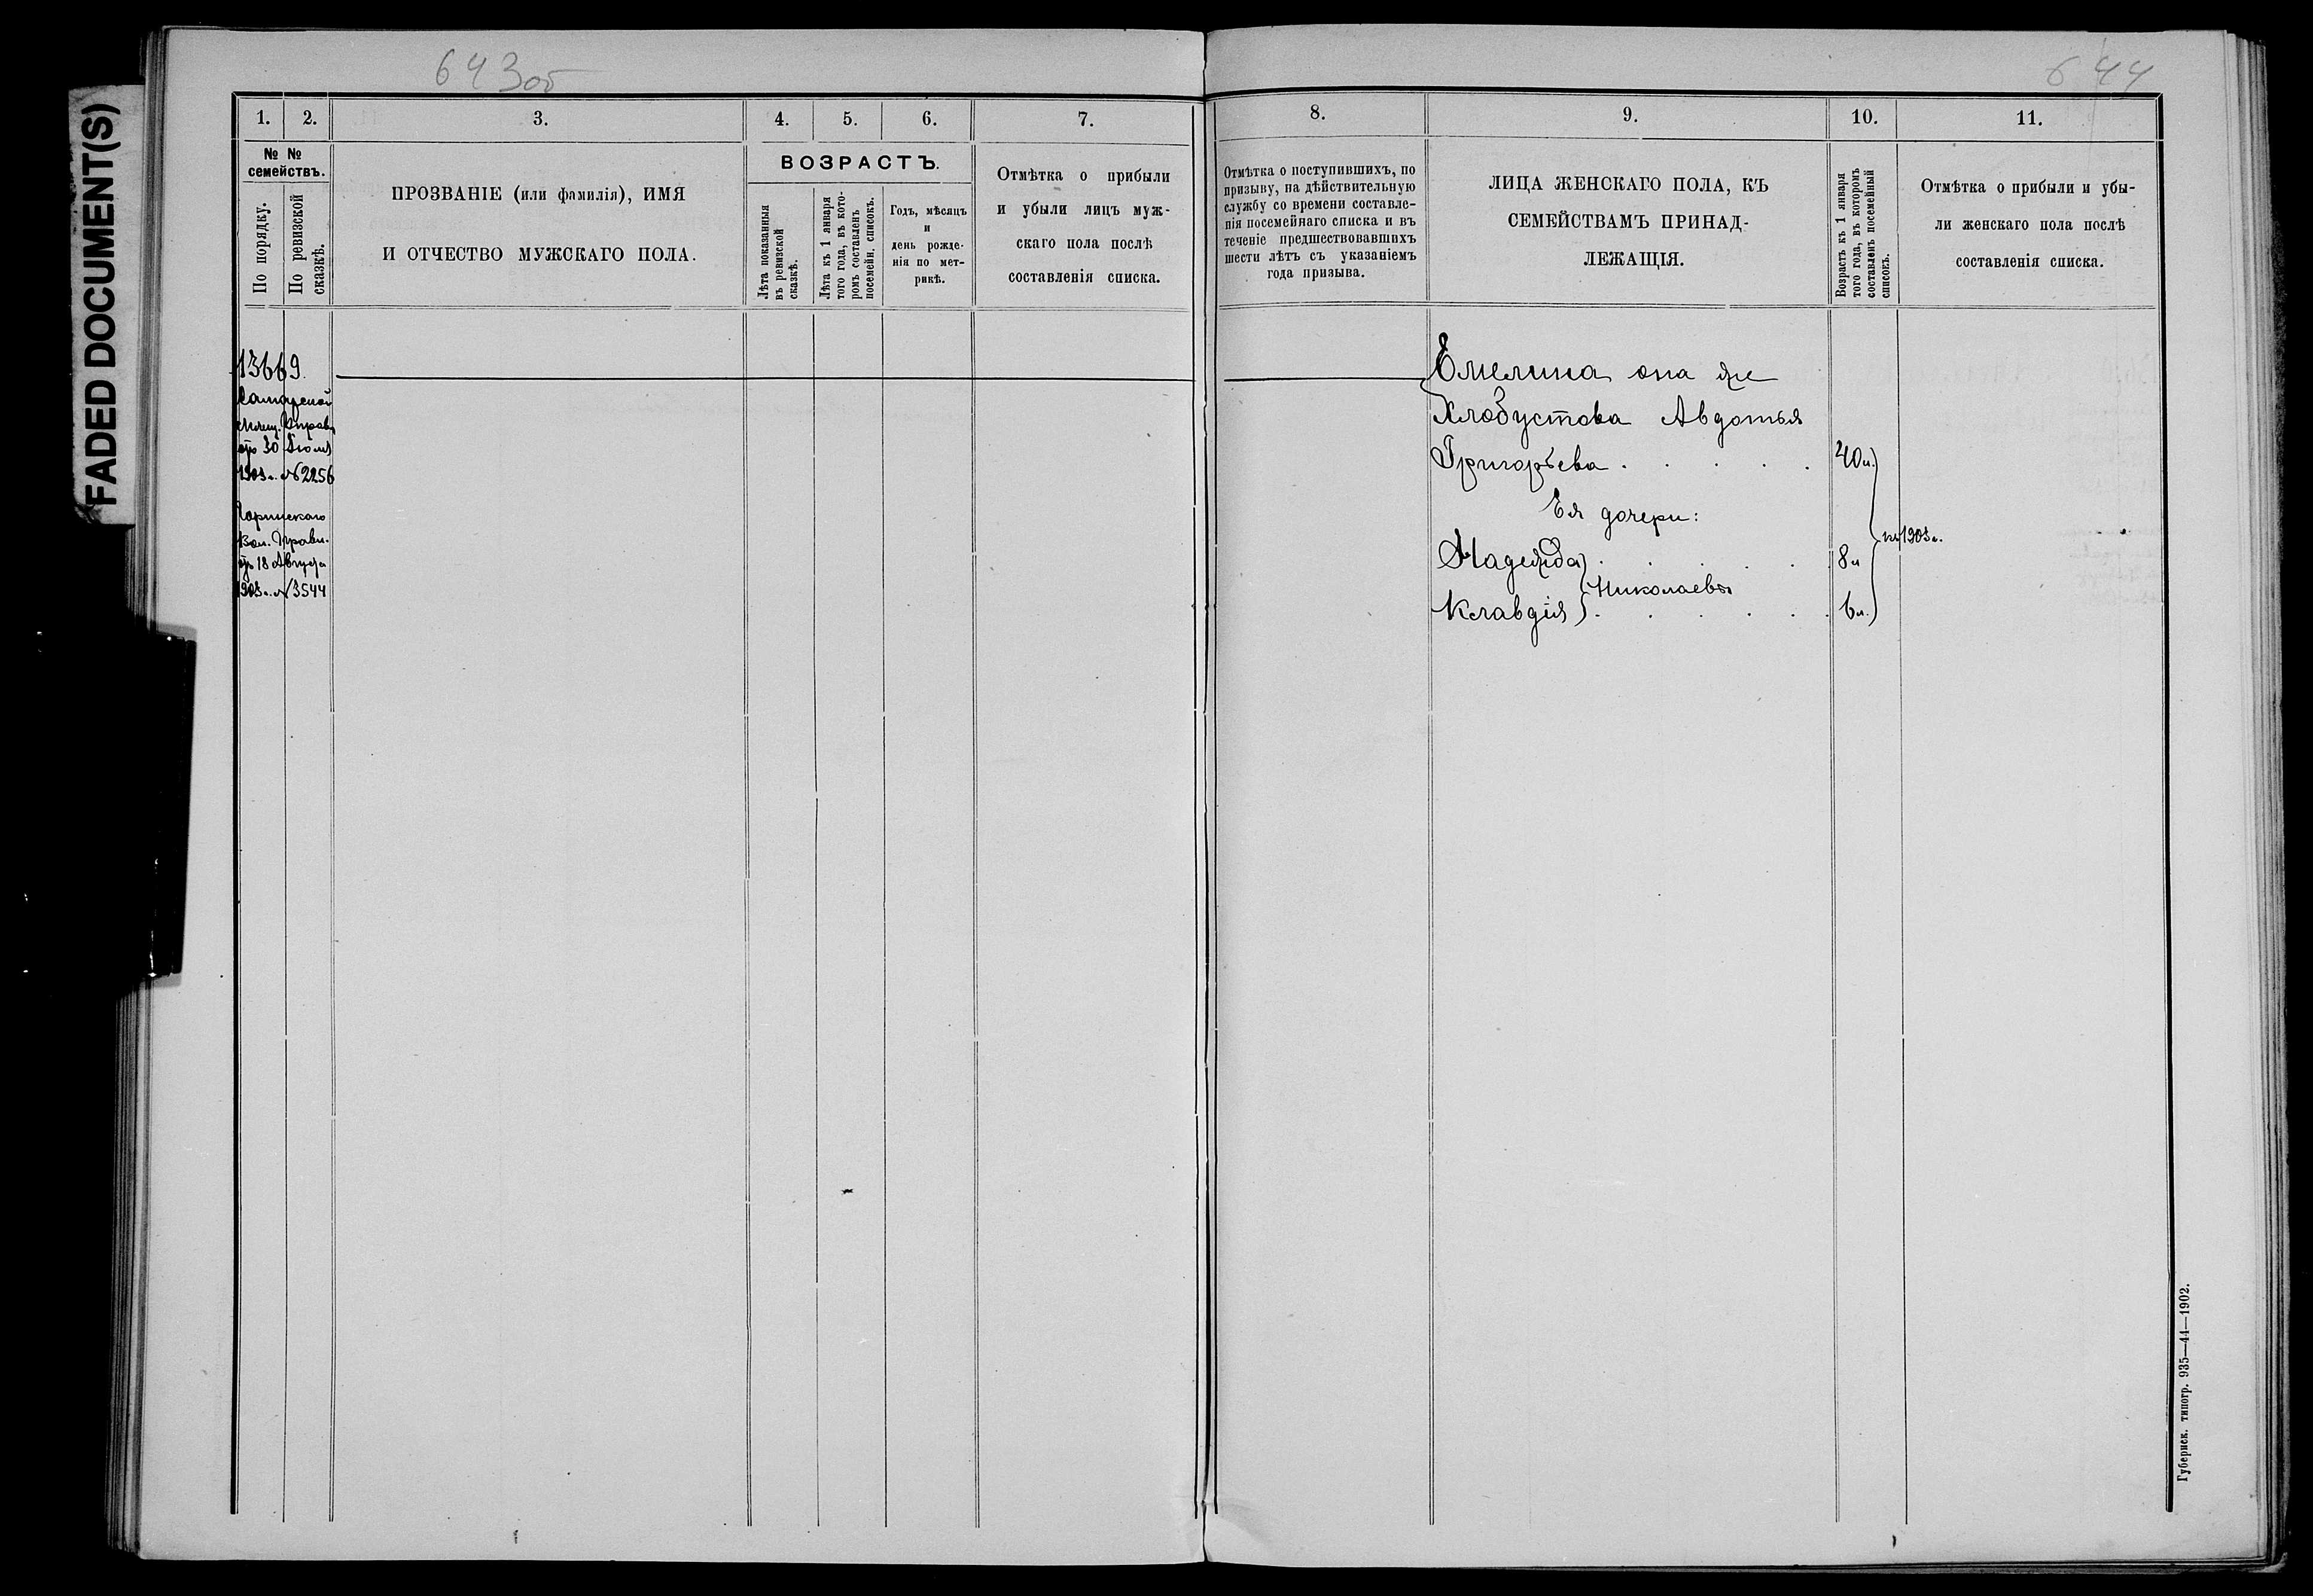 FADED DOCUMENT(S)
643об
644
1. 2. 3. 4. 5. 6. 7.
№ № семействъ.
По порядку.
По ревизской сказкѣ.
ПРОЗВАНІЕ (или фамилія), ИМЯ
И ОТЧЕСТВО МУЖСКАГО ПОЛА.
ВОЗРАСТЪ.
Лѣта показанныя
въ ревизской
сказкѣ.
Лѣта къ 1 января
того года, въ кото-
ромъ составленъ
посемейн. списокъ.
Годъ, мѣсяцъ
и
день рожде-
нія по мет-
рикѣ.
Отмѣтка о прибыли
и убыли лицъ муж-
скаго пола послѣ
составленія списка.
13669.
Самарской
Мѣщ. Управы
отъ 30 Іюля
1903 г. № 2256
Вол. Правл.
отъ 18 Августа
1903 г. № 3544
8. 9. 10. 11.
Отмѣтка о поступившихъ, по
призыву, на дѣйствительную
службу со времени составле-
нія посемейнаго списка и въ
теченіе предшествовавшихъ
шести лѣтъ съ указаніемъ
года призыва.
ЛИЦА ЖЕНСКАГО ПОЛА, КЪ
СЕМЕЙСТВАМЪ ПРИНАД-
ЛЕЖАЩІЯ.
Возрастъ къ 1 января
того года, въ которомъ
составленъ посемейный
списокъ.
Отмѣтка о прибыли и убы-
ли женскаго пола послѣ
составленія списка.
Емелина она же
Хлобустова Авдотья
Григорьева . . . . . 40 л.
Ея дочери:
на 1903 г.
Надежда . . . . . 8 л
Николаевы
Клавдія . . . . . 6 л.
Губернск. типогр. 935—44—1902.